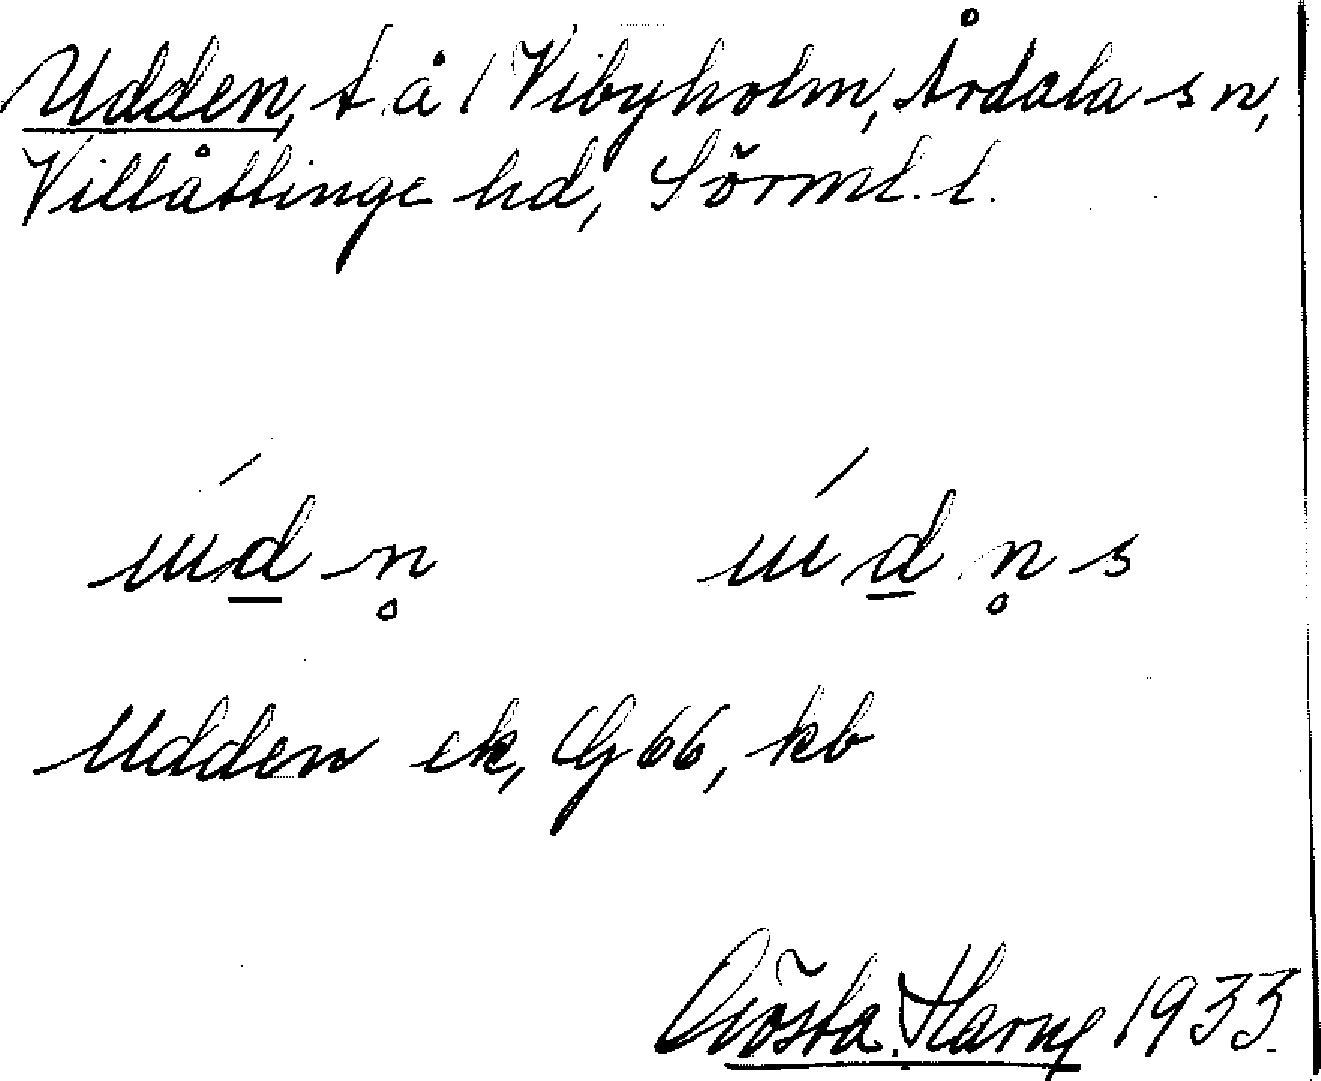 Udden, t å / Vibyholm, Årdala sn,
Villåttinge hd, Sörml. l.
úd̲ n̥ úd̲ n̥ s
Udden ek, G 66, kb
Gösta Harne 1933.